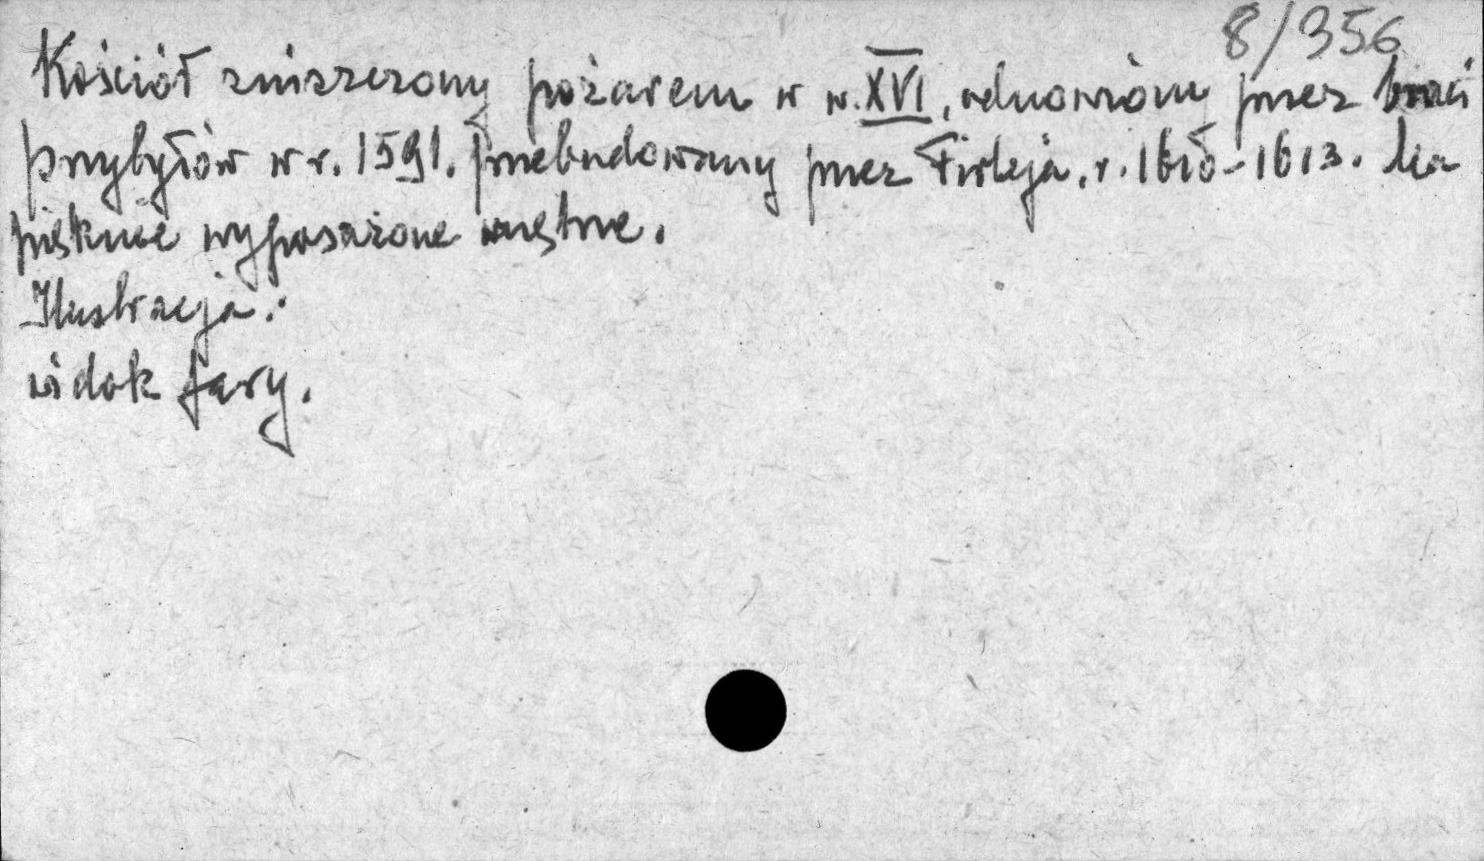 8/356
Kościół zniszczony pożarem w w. XVI, odnowiony przez braci
Przybyłów w r. 1591. Przebudowany przez Firleja, r. 1610-1613. Ma
pięknie wyposażone wnętrze.
Ilustracja:
widok fary.